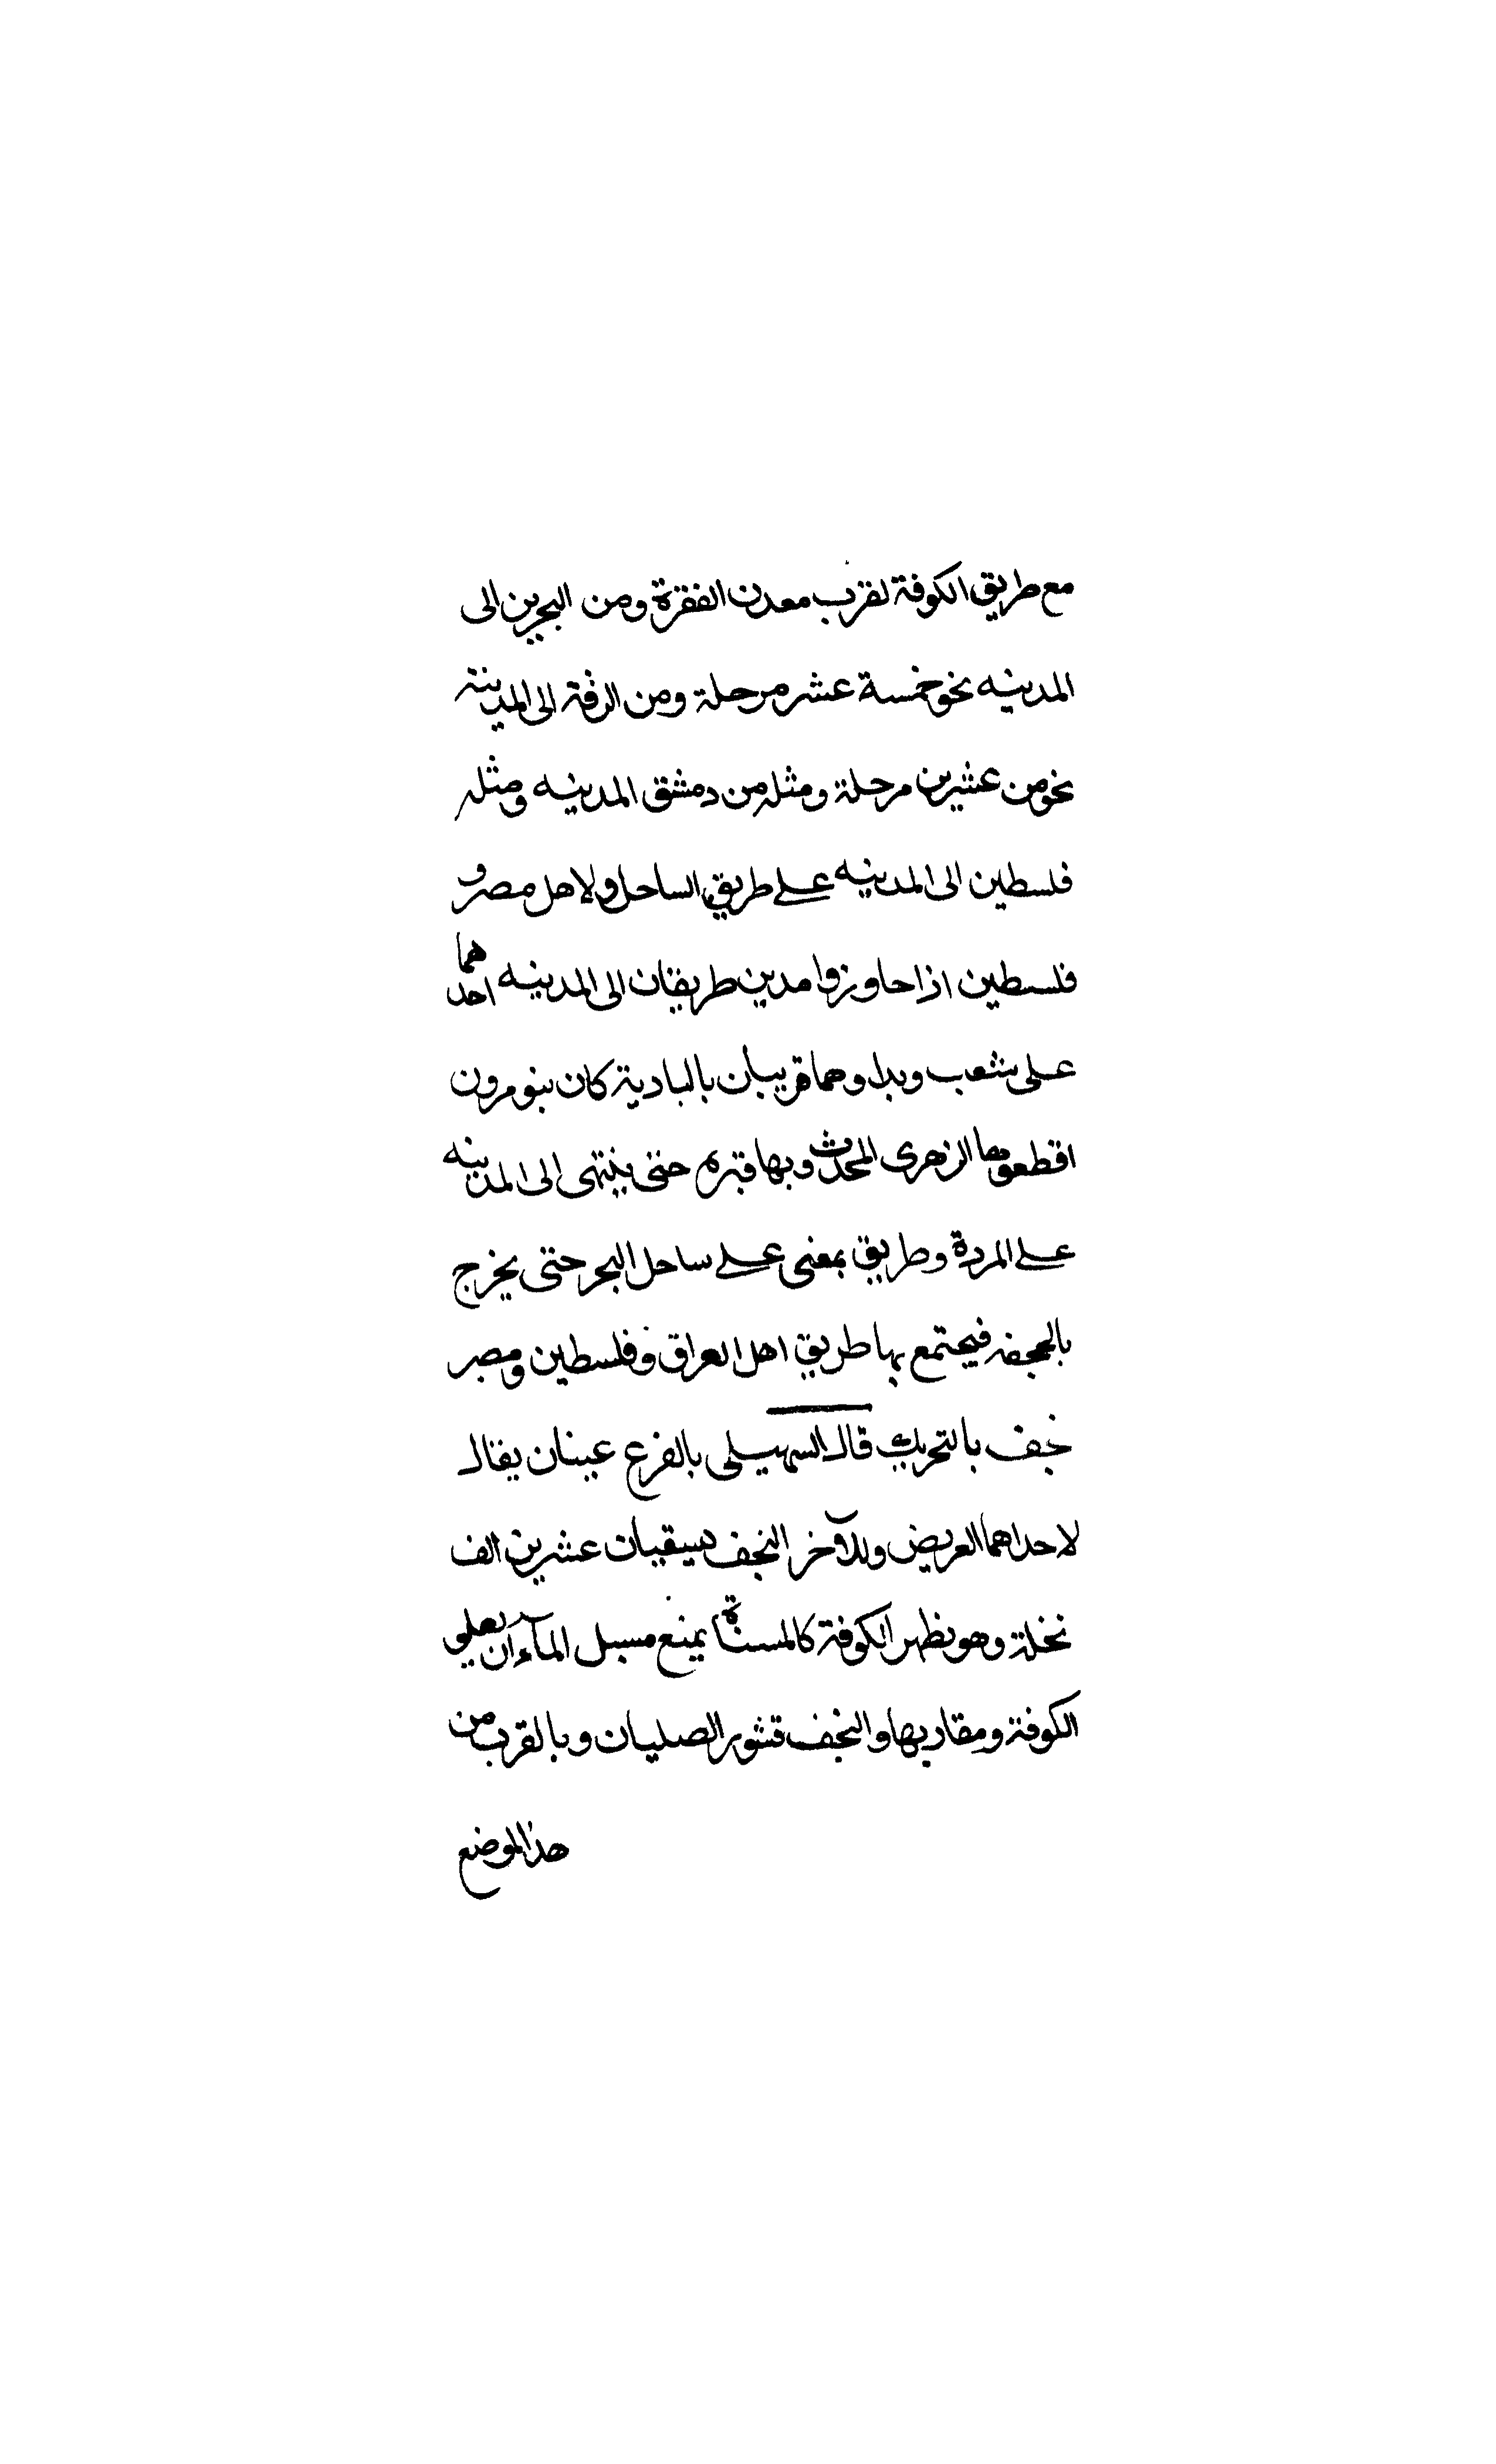 مع طريق الكوفة لقرب معدن الفقرة ومن البحرين الى
المدينه نحو خمسة عشر مرحلة ومن الرقة الى المدينة
نحو من عشرين مرحلة ومثله من دمشق المدينه ومثله
فلسطين الى المدينه على طريق الساحل ولاهل مصر و
فلسطين اذا جاوزوا مدين طريقان الى المدينه احدهما
على شعب وبدا وهما قريبان بالبادية كان بنو مرون
اقطعوها الزهرى المحدث وبها قبره حتى ينتهى الى المدينه
على المردة وطريق بمعنى على ساحل البحر حتى يخرج
بالجحفه فيجتمع بها طريق اهل العراق وفلسطين ومصر
نجف بالتحريك قال السهيلى بالفرع عينان يقال
لاحداهما العريض وللآخر النجف تسقيان عشرين الف
نخلة وهو بظهر الكوفة كالمسناة يمنع مسيل المآء ان يعلو
الكوفة ومقاربها والنجف قشور الصليان وبالقرب من
هذا الموضع